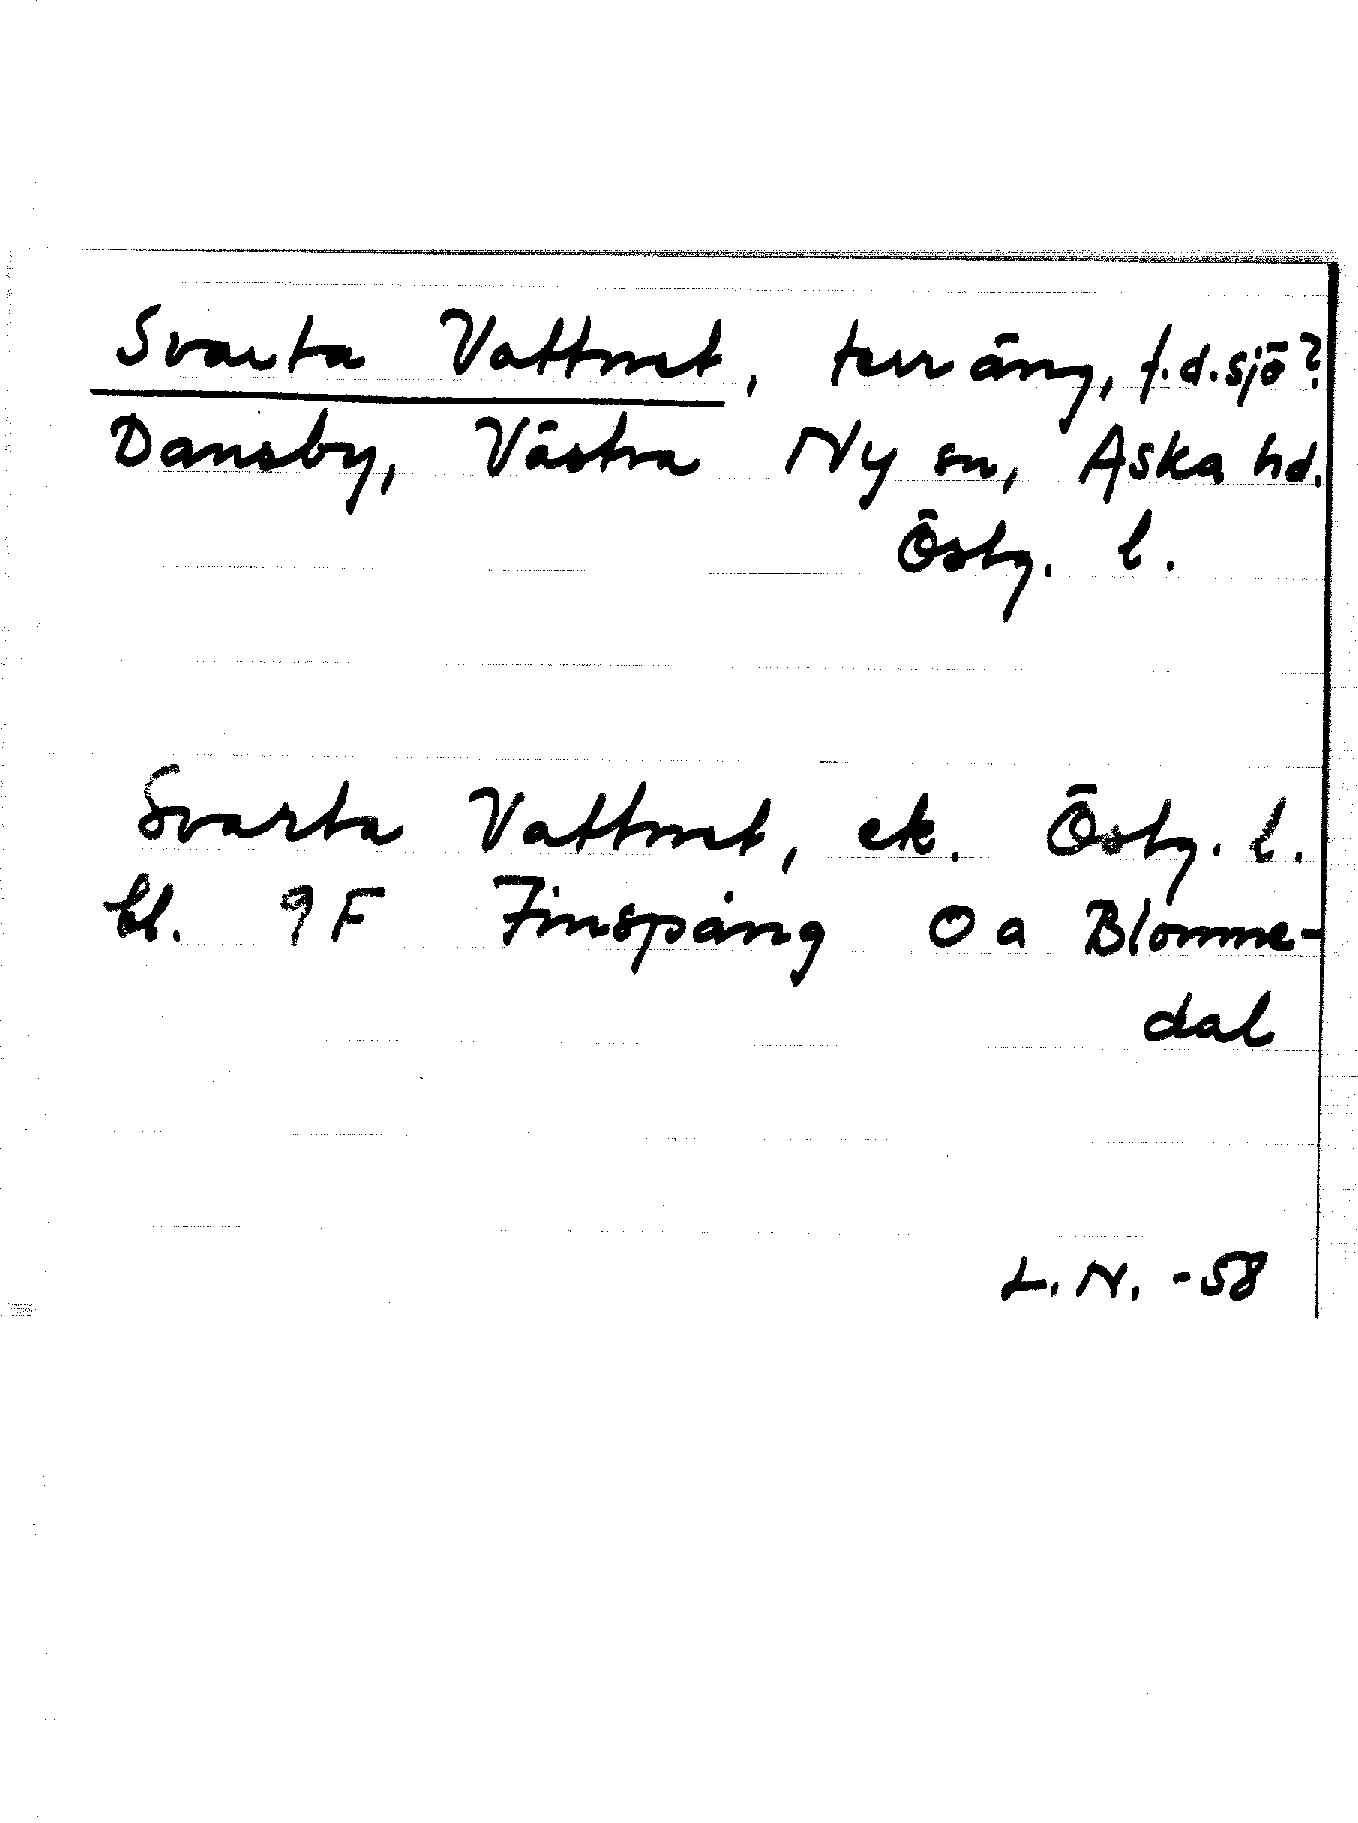 Svarta Vattnet, terräng, f.d. sjö?
Dansby, Västra Ny sn, Aska hd.
Östg. l.
Svarta Vattnet, ek. Östg. l.
bl. 9F Finspång O a Blomme-
dal
L.N. -58